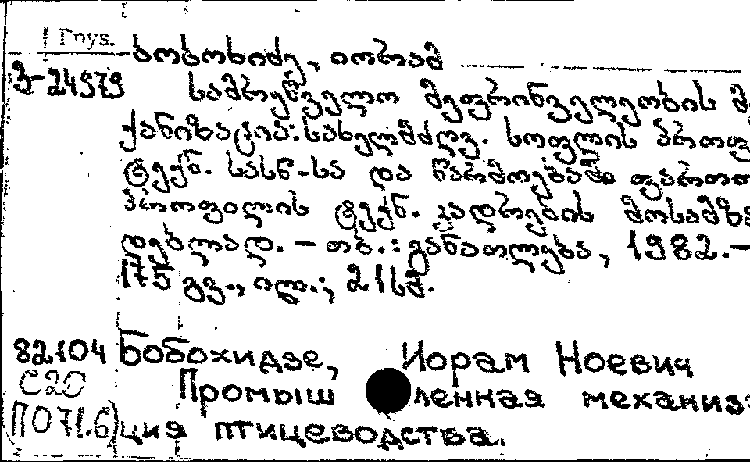 Груз. ბობოხიძე, იორამ
მ-24979 სამრეწველო მეფრინველეობის მ
ქანიზაცია: სახელმძღვ. სოფლის პროფ
ტექნ. სასწ-სა და წარმოებაში ფართო
პროფილის ტექნ. კადრების მოსამზა
დებლად. — თბ.: განათლება, 1982. —
175 გვ., ილ.; 21სმ.
82.104 Бобохидзе, Иорам Ноевич
С20 Промышленная механиза
(П071.6) ция птицеводства.